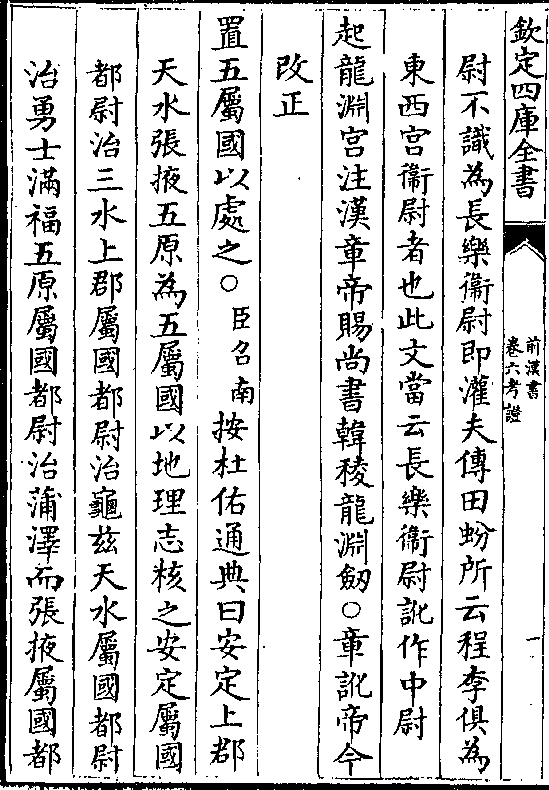 欽定四庫全書
前漢書
卷六考證
一
尉不識為長樂衞尉即灌夫傳田蚡所云程李俱為
東西宫衞尉者也此文當云長樂衞尉訛作中尉
起龍淵宫注漢章帝賜尚書韓稜龍淵劒○章訛帝今
改正
置五屬國以處之○臣召南按杜佑通典曰安定上郡
天水張掖五原為五屬國以地理志核之安定屬國
都尉治三水上郡屬國都尉治龜兹天水屬國都尉
治勇士滿福五原屬國都尉治蒲澤而張掖屬國都